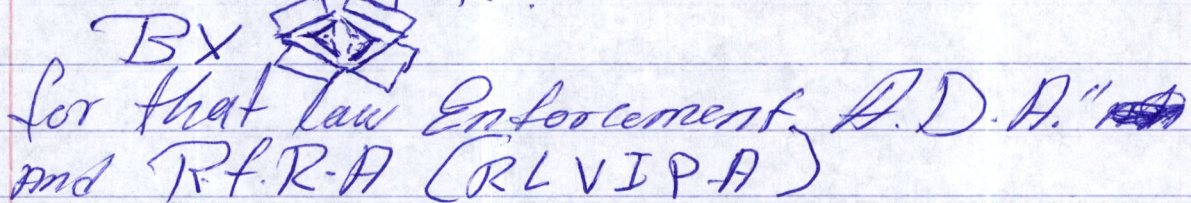 BX
for that law Enforcement, A.D.A."
and R.f.R.A (RLVIPA)